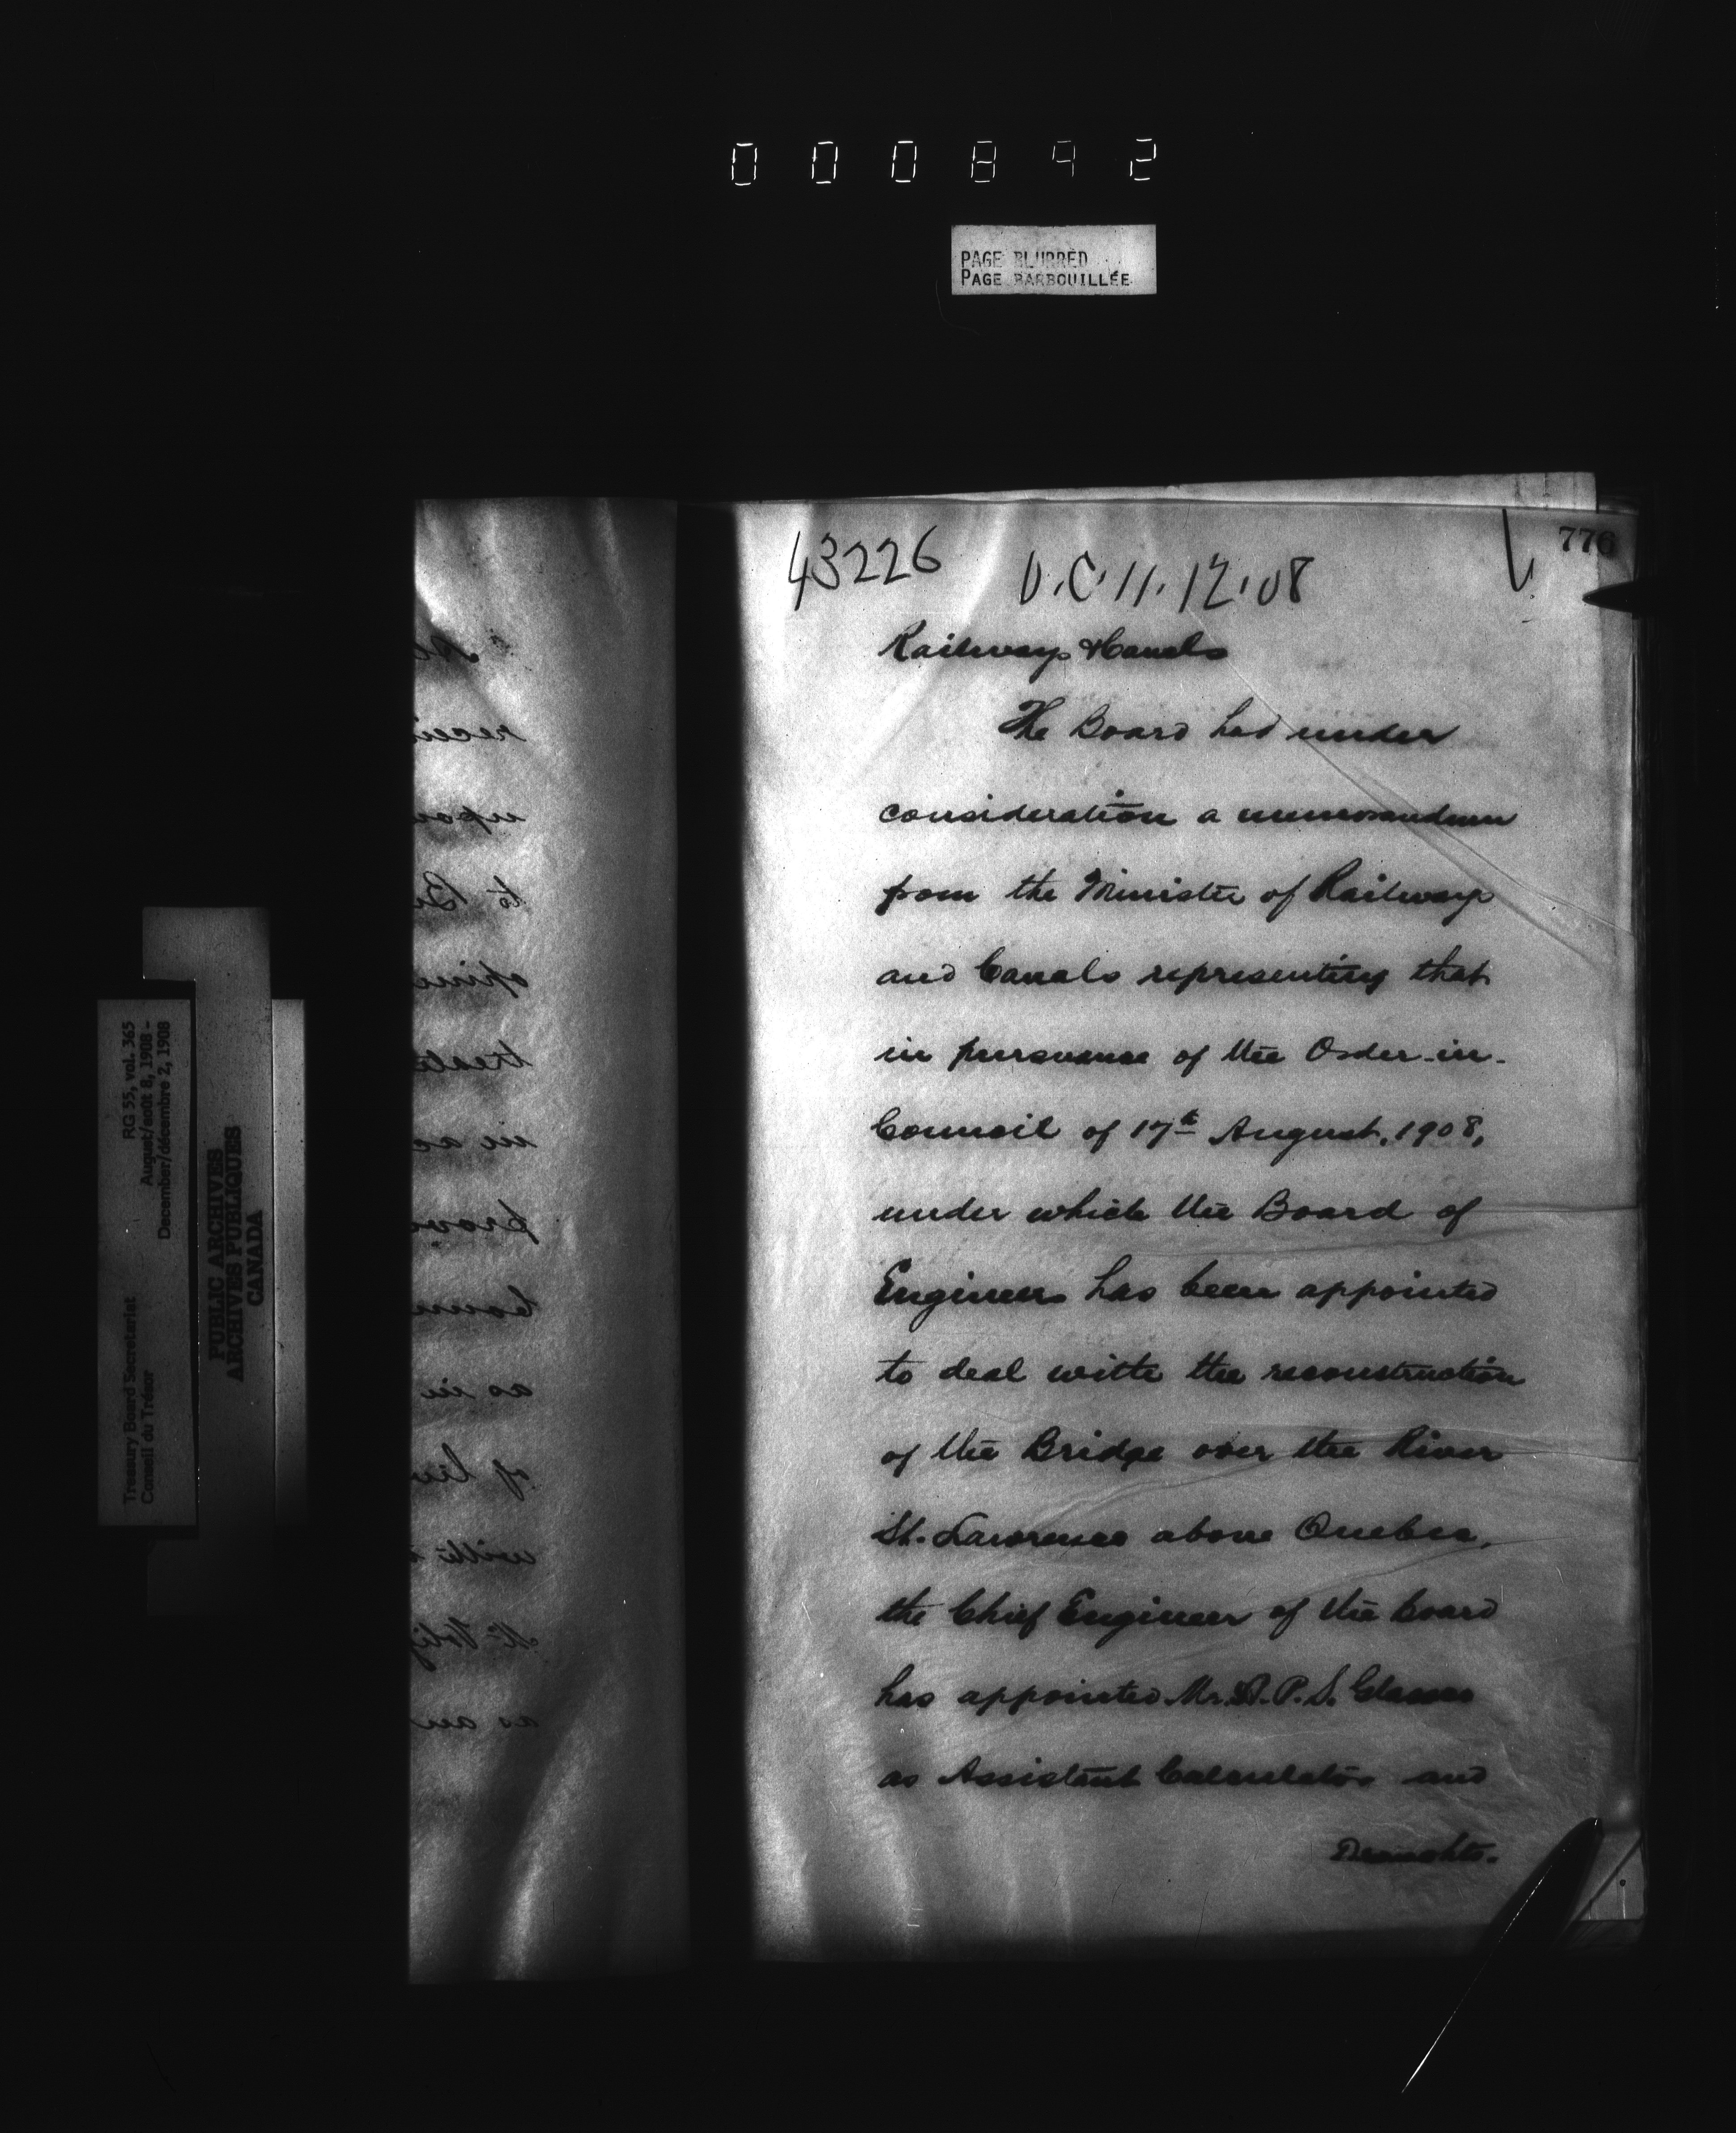 000892
PAGE BLURRED
PAGE BARBOUILLÉE
776
43226 O.C. 11.12.08
Railways & Canals
The Board had under
consideration a memorandum
from the Minister of Railways
and Canals representing that
in pursuance of the Order-in-
Council of 17th August, 1908,
under which the Board of
Engineers has been appointed
to deal with the reconstruction
of the Bridge over the River
St. Lawrence above Quebec,
the Chief Engineer of the Board
has appointed Mr. A. P. S.
as Assistant Calculator and
Draughts-
Treasury Board Secretariat RG 55, vol. 365
Conseil du Trésor August/août 8, 1908 -
December/décembre 2, 1908
PUBLIC ARCHIVES
ARCHIVES PUBLIQUES
CANADA